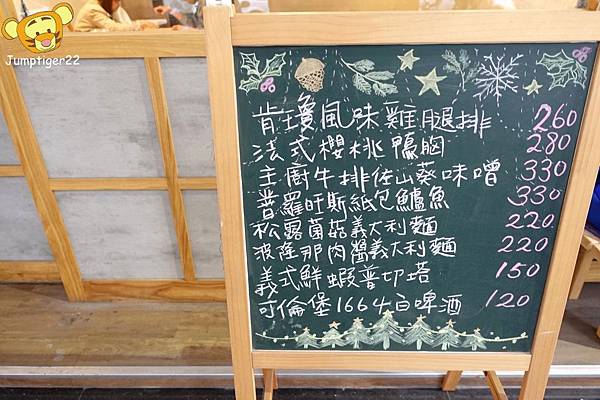 Jumptiger22
肯瓊風味雞腿排 260
法式櫻桃鴨胸 280
主廚牛排佐山葵味噌 330
普羅旺斯紙包鱸魚 330
松露菌菇義大利麵 220
波隆那肉醬義大利麵 220
義式鮮蝦普切塔 150
可倫堡1664白啤酒 120